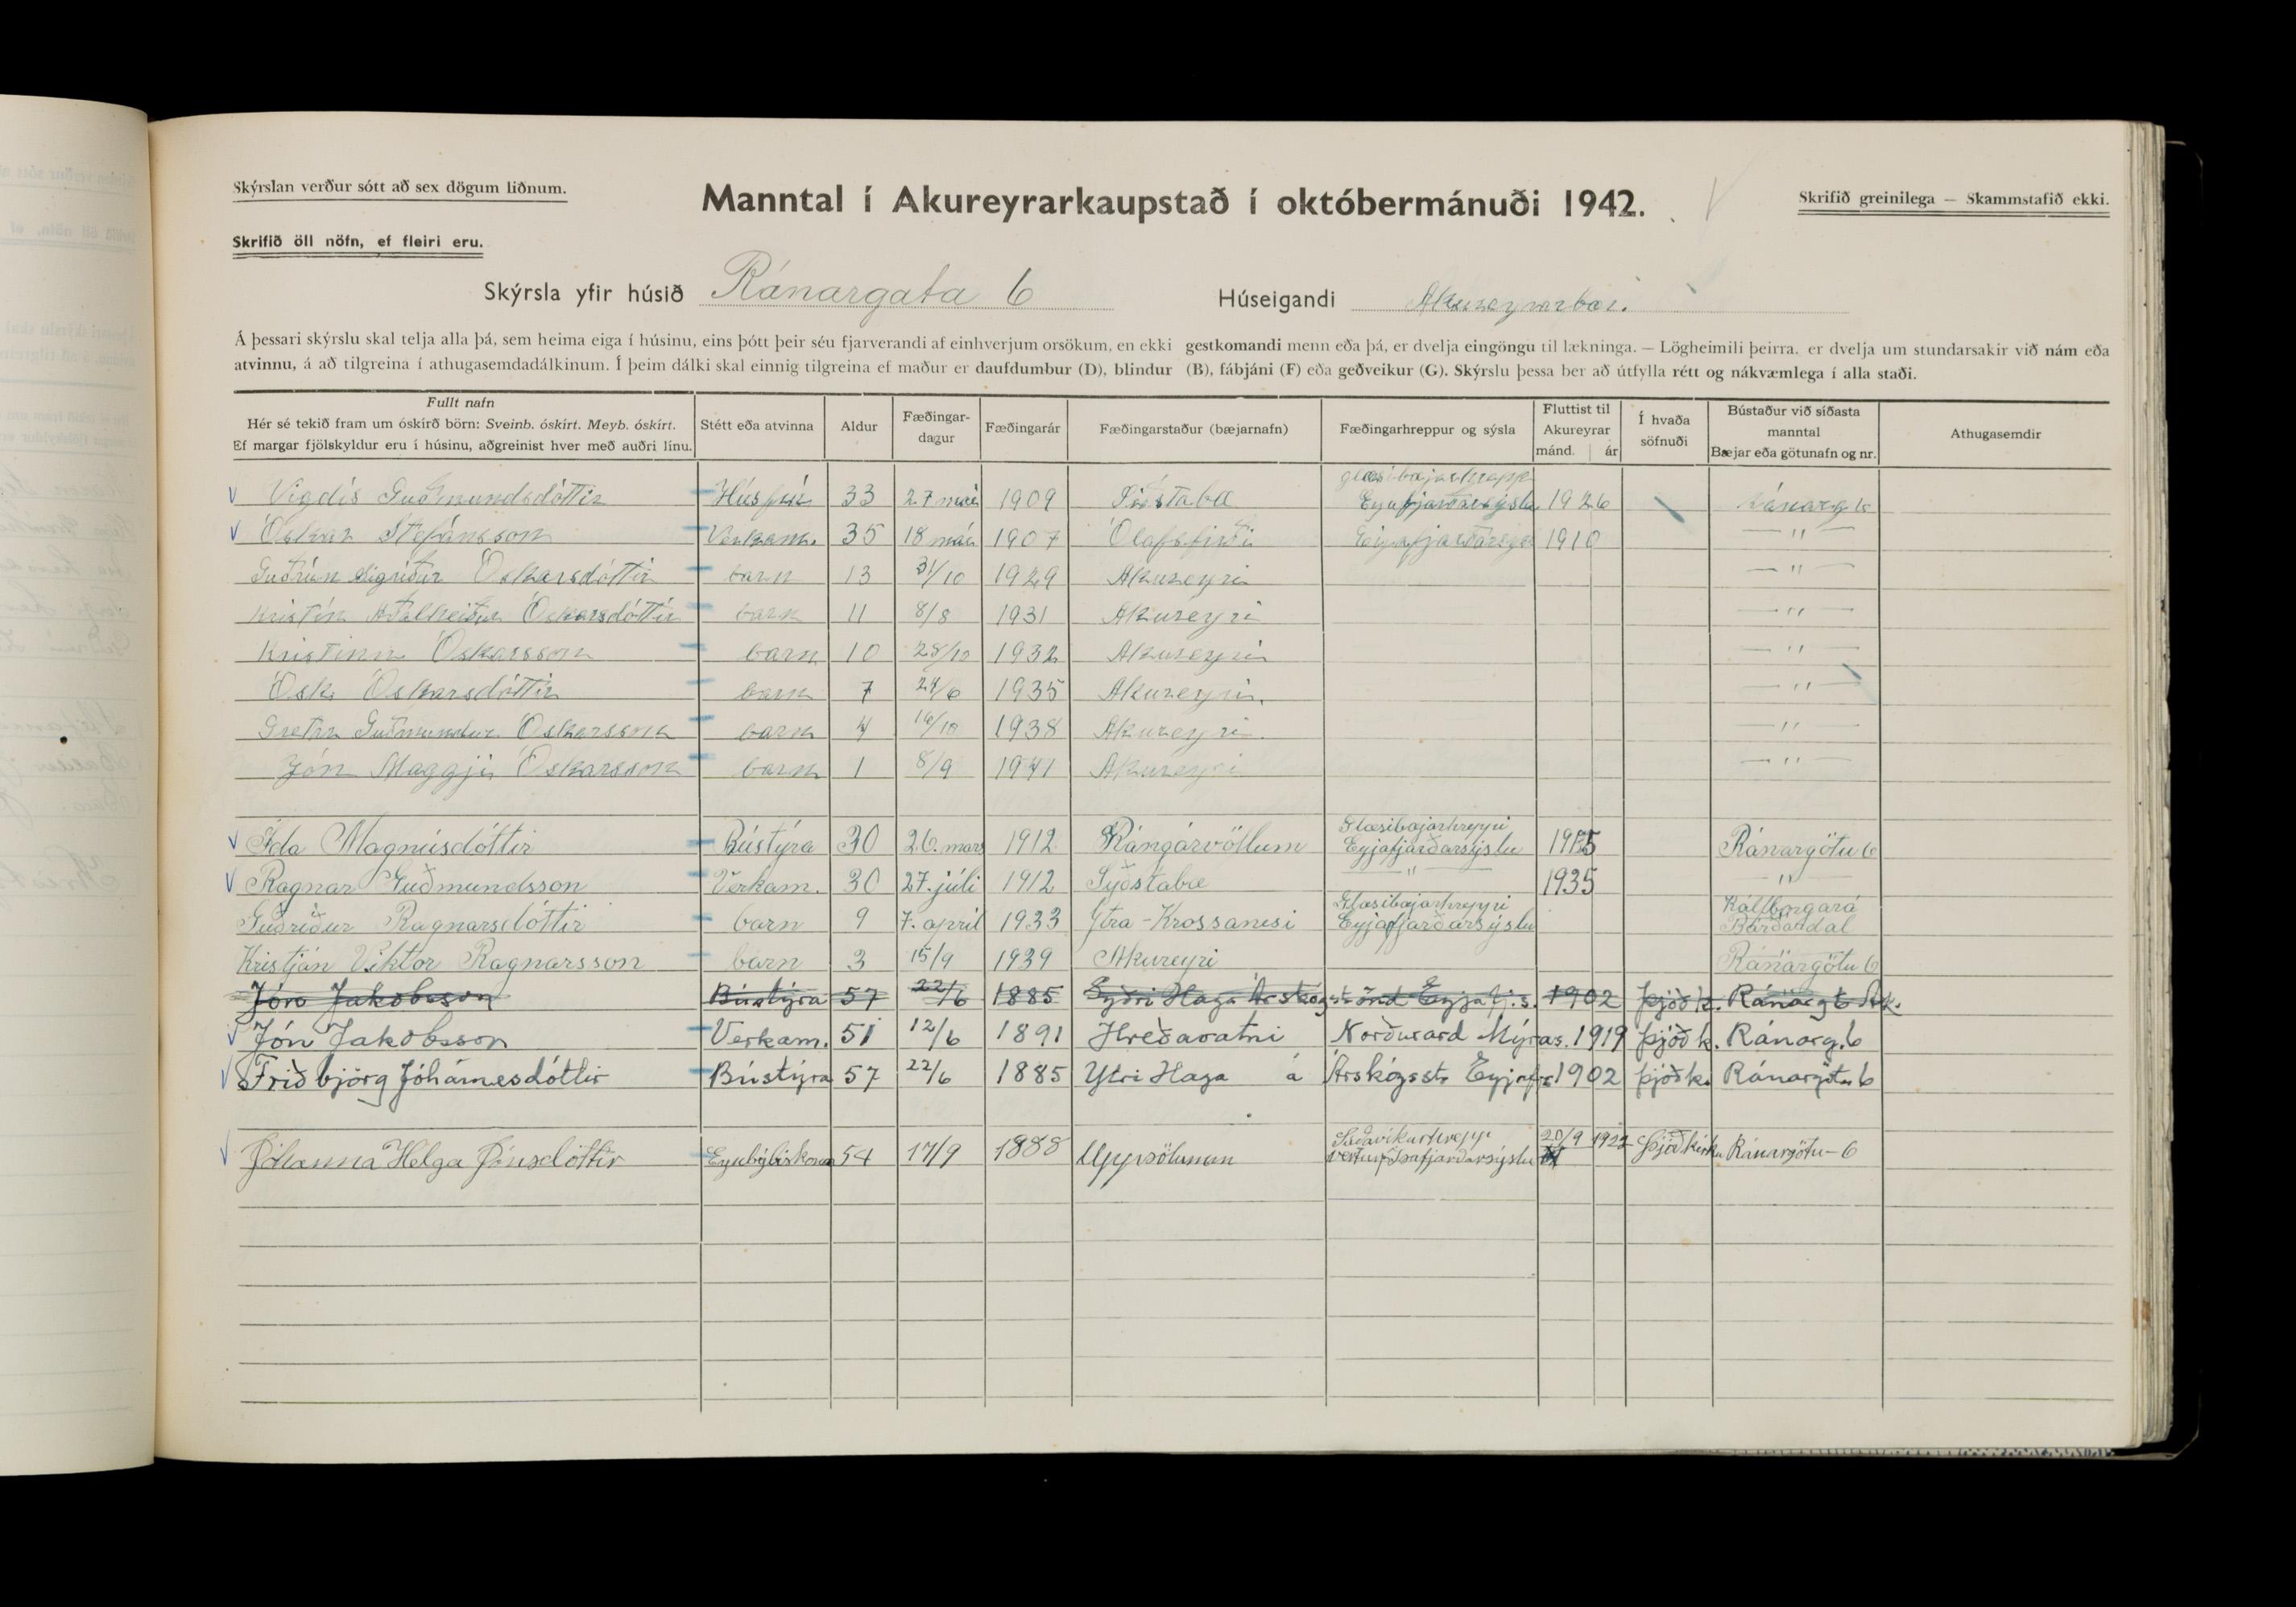 Skýrslan verður sótt að sex dögum liðnum.
Manntal í Akureyrarkaupstað í októbermánuði 1942.
Skrifið greinilega — Skammstafið ekki.
Skrifið öll nöfn, ef fleiri eru.
Skýrsla yfir húsið Ránargata 6 Húseigandi Akureyrarbær.
Á þessari skýrslu skal telja alla þá, sem heima eiga í húsinu, eins þótt þeir séu fjarverandi af einhverjum orsökum, en ekki gestkomandi menn eða þá, er dvelja eingöngu til lækninga. — Lögheimili þeirra, er dvelja um stundarsakir við nám eða
atvinnu, á að tilgreina í athugasemdadálkinum. Í þeim dálki skal einnig tilgreina ef maður er daufdumbur (D), blindur (B), fábjáni (F) eða geðveikur (G). Skýrslu þessa ber að útfylla rétt og nákvæmlega í alla staði.
Fullt nafn
Hér sé tekið fram um óskírð börn: Sveinb. óskírt. Meyb. óskírt.
Ef margar fjölskyldur eru í húsinu, aðgreinist hver með auðri línu.
Stétt eða atvinna
Aldur
Fæðingar-
dagur
Fæðingarár
Fæðingarstaður (bæjarnafn)
Fæðingarhreppur og sýsla
Fluttist til
Akureyrar
mánd. ár
Í hvaða
söfnuði
Bústaður við síðasta
manntal
Bæjar eða götunafn og nr.
Athugasemdir
Vigdís Guðmundsdóttir Húsfrú 33 27 maí 1909 Glæsibæjarhrepp Eyjafjarðarsýslu 1926 Ránarg 6
Óskar Stefánsson Verkam. 35 18 1907 Ólafsfirði 1910 — " —
Guðrún Sigríður Óskarsdóttir barn 13 31/10 1929 Akureyri — " —
Kristín Aðalheiður Óskarsdóttir barn 11 8/8 1931 Akureyri — " —
Kristinn Óskarsson barn 10 1932 Akureyri — " —
Ósk Óskarsdóttir barn 7 24/6 1935 Akureyri. — " —
Gretar Guðmundur Óskarsson barn 4 1938 Akureyri. — " —
Jón Maggji Óskarsson barn 1 8/9 1941 Akureyri — " —
Ída Magnúsdóttir Bústýra 30 26. mars 1912 Rángárvöllum Glæsibæjarhreppi Eyjafjarðarsýslu Ránargötu 6
Ragnar Guðmundsson Verkam. 30 27. júli 1912 Syðstabæ — " — 1935 — " —
Guðríður Ragnarsdóttir barn 9 7. apríl 1933 Ytra-Krossanesi Glæsibæjarhreppi Eyjafjarðarsýslu Kálfborgará Bárðardal
Kristján Viktor Ragnarsson barn 3 15/9 1939 Akureyri Ránargötu 6
Jón Jakobsson Bústýra 57 22/6 1885 1902 þjóðk. Ránarg 6 Ak.
Jón Jakobsson Verkam. 51 12/6 1891 Hreðavatni Norðurard Mýras. 1919 þjóðk. Ránarg. 6
Friðbjörg Jóhánnesdóttir Bústýra 57 22/6 1885 Ytri Haga á Árskógsstr Eyjafs 1902 þjóðk. Ránargötu 6
Jóhanna Helga Jónsdóttir 54 17/9 1888 Uppsölunum Súðavíkurhrepp Ísafjarðarsýslu 20/9 1922 Þjóðkirku Ránargötu-6